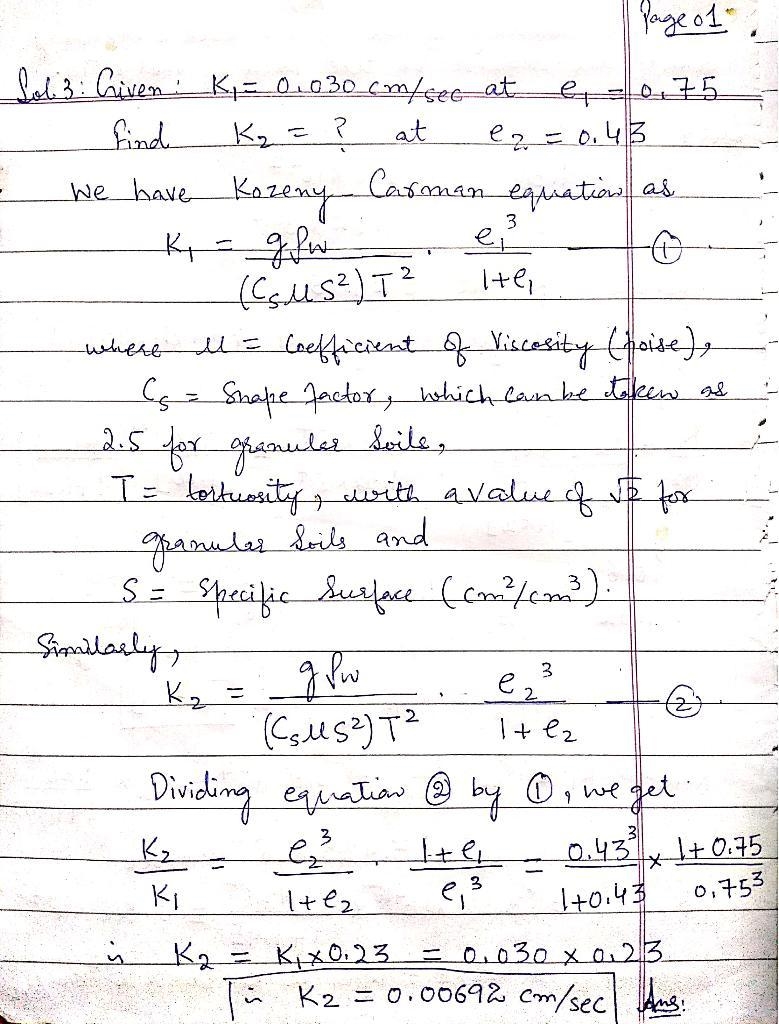 Page 01
Sol. 3: Given: K₁ = 0.030 cm/sec at e₁ = 0.75
find K₂ = ? at e₂ = 0.43
We have Kozeny Carman equation as
K₁ = gρw/(CsμS²)T² · e₁³/1+e₁ — ①
where μ = Coefficient of Viscosity (poise),
Cs = Shape factor, which can be taken as
2.5 for granular Soils,
T = tortuosity, with a value of √2 for
granular Soils and
S = Specific Surface (cm²/cm³).
Similarly,
K₂ = gρw/(CsμS²)T² · e₂³/1+e₂ — ②
Dividing equation ② by ①, we get
K₂/K₁ = e₂³/1+e₂ · 1+e₁/e₁³ = 0.43³/1+0.43 × 1+0.75/0.75³
K₂ = K₁×0.23 = 0.030 × 0.23
K₂ = 0.00692 cm/sec Ans: